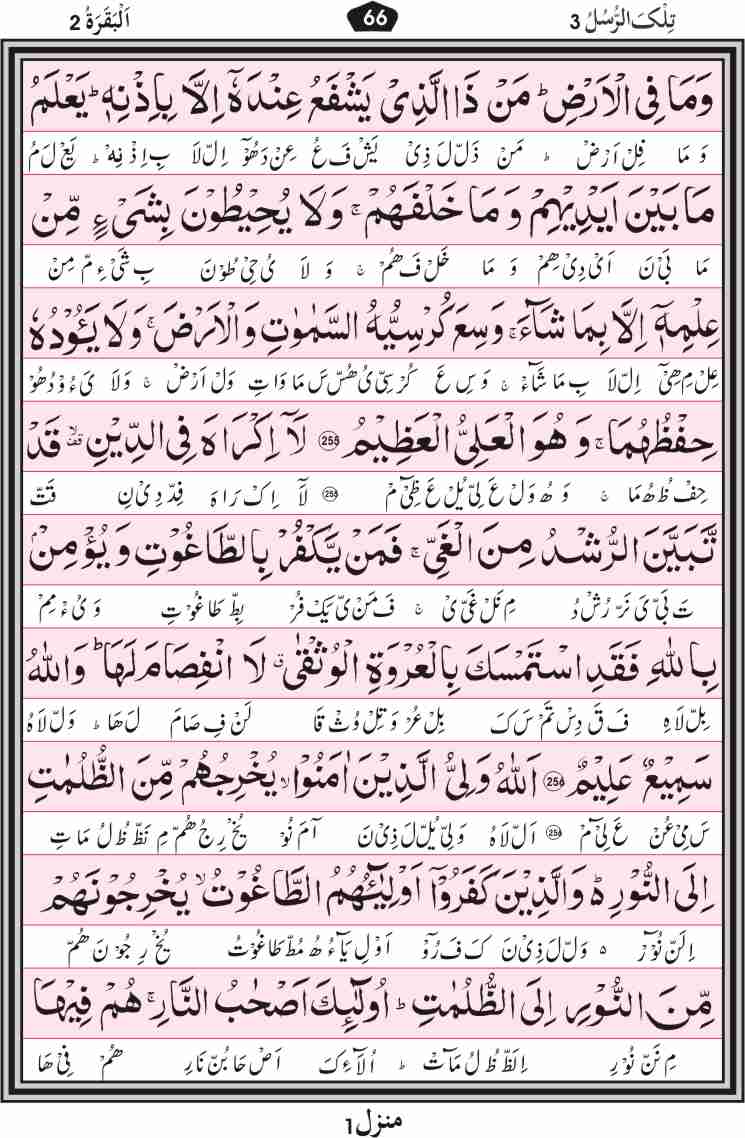 تِلْكَ الرُّسُلُ 3
66
اَلْبَقَرَةُ 2
وَمَا فِى الْاَرْضِ ؕ مَنْ ذَا الَّذِىْ يَشْفَعُ عِنْدَهٗۤ اِلَّا بِاِذْنِهٖ ؕ يَعْلَمُ
وَ مَا فِلْ اَرْضْ ؕ مَنْ ذَلّ لَ ذِىْ يَشْ فَ عُ عِنْ دَهُوْٓ اِلْ لَا بِ اِذْ نِهْ ؕ يَعْ لَ مُ
مَا بَيْنَ اَيْدِيْهِمْ وَ مَا خَلْفَهُمْ ۚ وَلَا يُحِيْطُوْنَ بِشَىْءٍ مِّنْ
مَا بَىْ نَ اَىْ دِىْ هِمْ وَ مَا خَلْ فَ هُمْ ۚ وَ لَا ىُ حِىْ طُوْنَ بِ شَىْ ءِ مّ مِنْ
عِلْمِهٖۤ اِلَّا بِمَا شَآءَ ۚ وَسِعَ كُرْسِيُّهُ السَّمٰوٰتِ وَالْاَرْضَ ۚ وَلَا يَـُٔوْدُهٗ
عِلْ مِ هِىْٓ اِلْ لَا بِ مَا شَآءْ ۚ وَ سِ عَ كُرْ سِىْ ىُ هُسْ سَ مَا وَا تِ وَلْ اَرْضْ ۚ وَ لَا ىَ ءُوْ دُ هُوْ
حِفْظُهُمَا ۚ وَ هُوَ الْعَلِىُّ الْعَظِيْمُ 255 لَاۤ اِكْرَاهَ فِى الدِّيْنِ ۙ قف قَدْ
حِفْ ظُ هُ مَا ۚ وَ هُ وَلْ عَ لِىْ يُلْ عَ ظِىْٓ مْ 255 لَآ اِكْ رَا هَ فِدّ دِىْ نِ قَتّ
تَّبَيَّنَ الرُّشْدُ مِنَ الْغَىِّ ۚ فَمَنْ يَّكْفُرْ بِالطَّاغُوْتِ وَ يُؤْمِنْۢ
تَ بَىْ ىَ نَرّ رُشْ دُ مِ نَلْ غَىْ ىْ ۚ فَ مَنْ ىّ يَكْ فُرْ بِطّ طَا غُوْ تِ وَ ىُ ءْ مِمْ
بِاللّٰهِ فَقَدِ اسْتَمْسَكَ بِالْعُرْوَةِ الْوُثْقٰى ۗ لَا انْفِصَامَ لَهَا ؕ وَاللّٰهُ
بِلْ لَاهِ فَ قَ دِسْ تَمْ سَ كَ بِلْ عُرْ وَ تِلْ وُثْ قَا لَنْ فِ صَامَ لَ هَا ؕ وَلْ لَا هُ
سَمِيْعٌ عَلِيْمٌ 256 اَللّٰهُ وَلِىُّ الَّذِيْنَ اٰمَنُوْا ۙ يُخْرِجُهُمْ مِّنَ الظُّلُمٰتِ
سَ مِىْ عُنْ عَ لِىْٓ مْ 256 اَلْ لَا هُ وَ لِىْ يُلّ لَ ذِىْ نَ آ مَ نُوْ يُخْ رِ جُ هُمّ مِ نَظّ ظُ لُ مَا تِ
اِلَى النُّوْرِ ؕ وَالَّذِيْنَ كَفَرُوْۤا اَوْلِيٰٓـُٔهُمُ الطَّاغُوْتُ ۙ يُخْرِجُوْنَهُمْ
اِلَنّ نُوْٓرْ ○ وَلّ لَ ذِىْ نَ كَ فَ رُوْٓ اَوْ لِ يَآ ءُ هُ مُطّ طَا غُوْتُ يُخْ رِ جُوْ نَ هُمّ
مِّنَ النُّوْرِ اِلَى الظُّلُمٰتِ ؕ اُولٰٓئِكَ اَصْحٰبُ النَّارِ ۚ هُمْ فِيْهَا
مِ نَنّ نُوْ رِ اِلَظّ ظُ لُ مَآتْ ؕ اُ لَآ ءِ كَ اَصْ حَا بُنّ نَارِ هُمْ فِىْ هَا
منزل 1